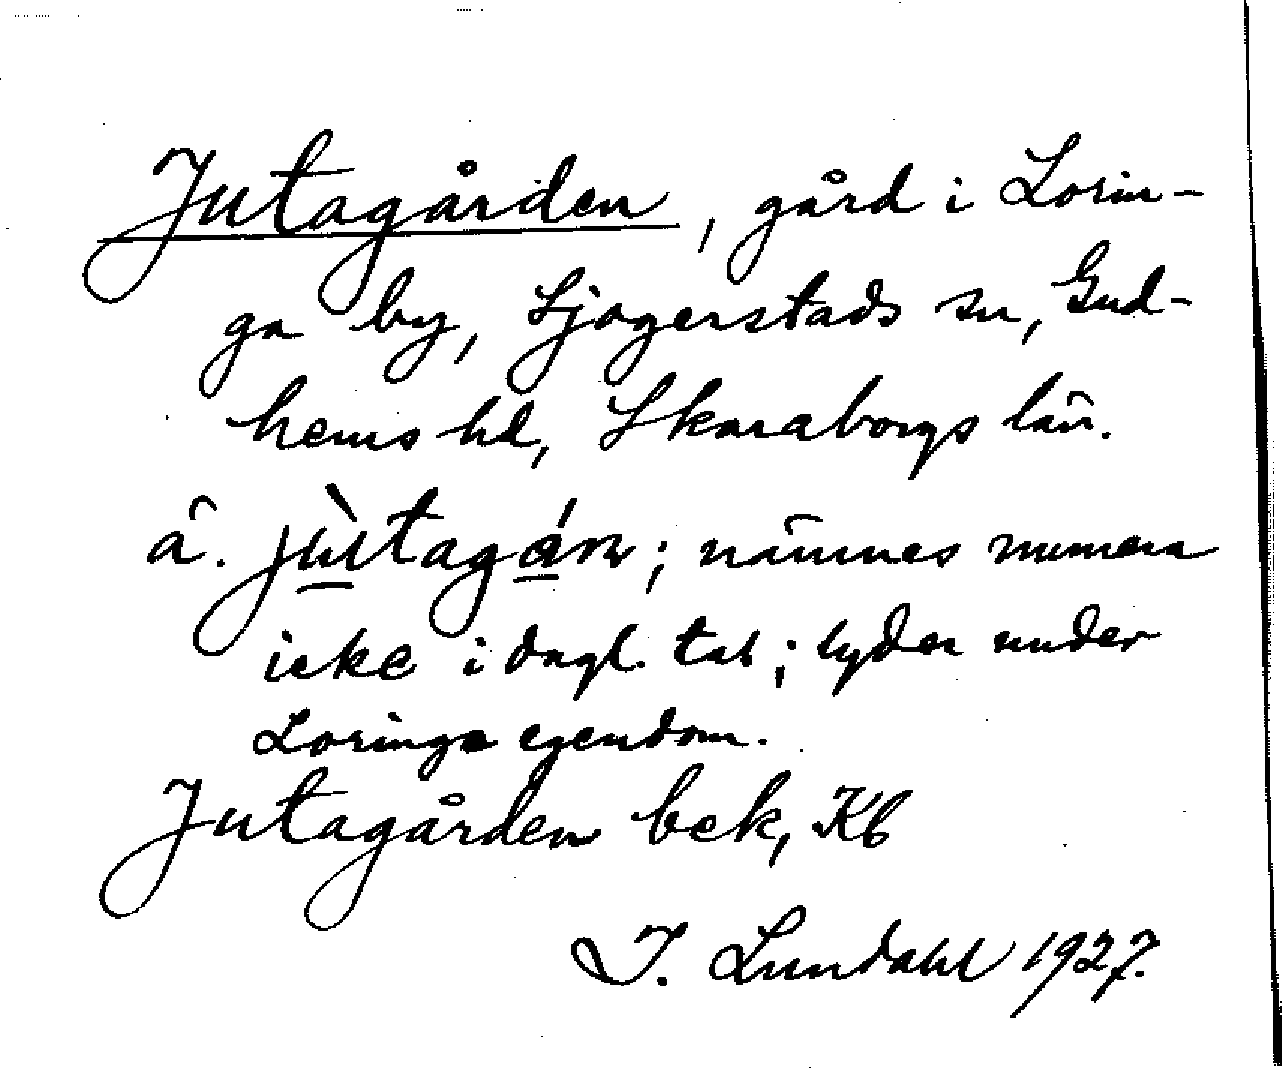 Jutagården, gård i Lorin-
ga by, Sjogerstads sn, Gud-
hems hd, Skaraborgs län.
â. jùtagán; nämnes numera
icke i dagl. tal; lyder under
Loringa egendom.
Jutagården bek, Kb
I. Lundahl 1927.